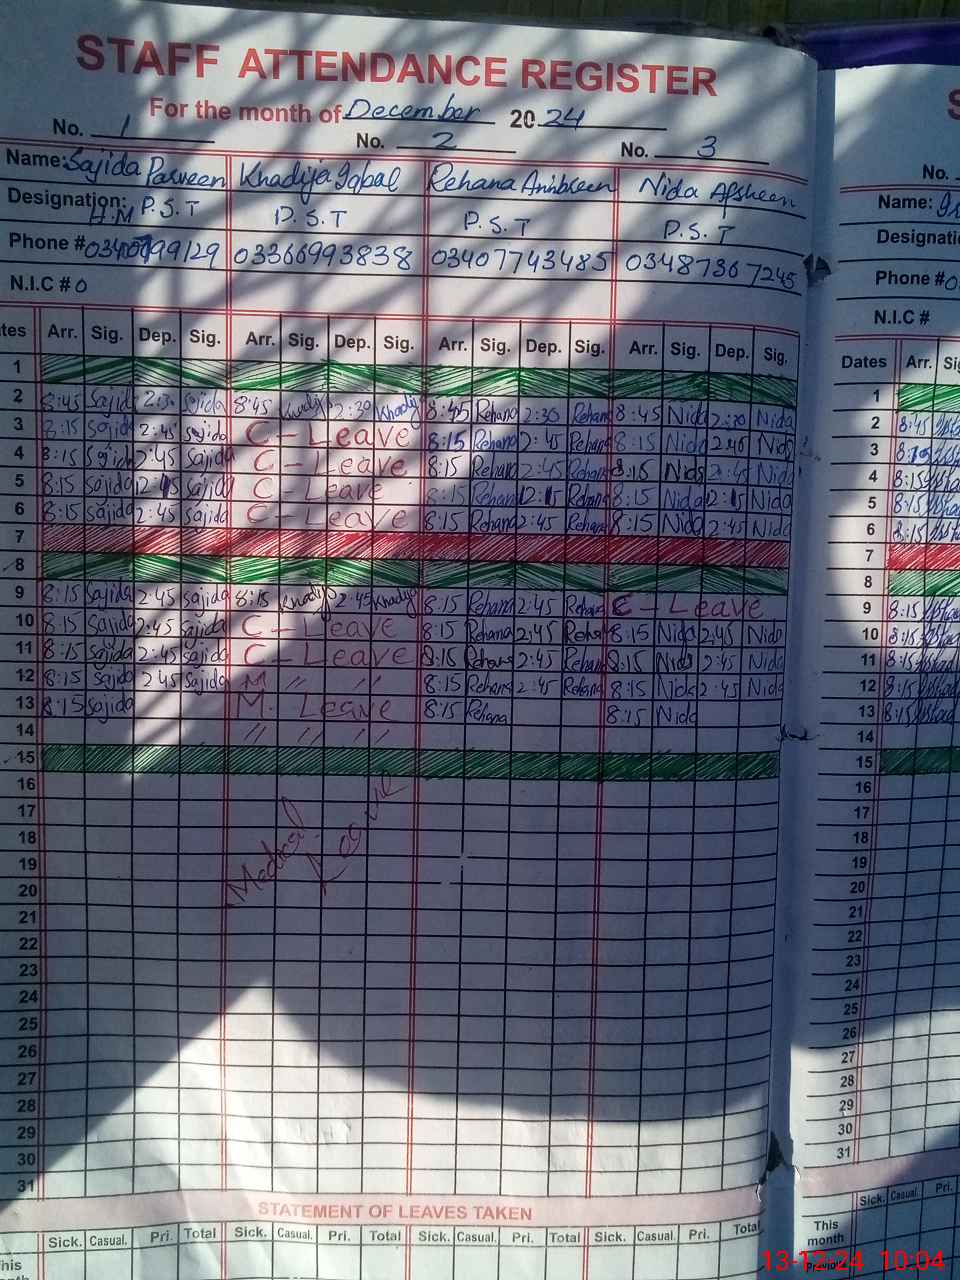 STAFF ATTENDANCE REGISTER
For the month of December 2024
No. 1 No. 2 No. 3
Name: Sajida Parveen Khadija Iqbal Rehana Nida Afsheen
Designation: H.M P.S.T P.S.T P.S.T P.S.T
Phone # 03366993838 03407743485 03487367245
N.I.C # 0
Arr. Sig. Dep. Sig. Arr. Sig. Dep. Sig. Arr. Sig. Dep. Sig. Arr. Sig. Dep. Sig.
1
2 8:45 Sajida 2:30 Sajida 8:45 Khadija 2:30 Khadija 8:45 Rehana 2:30 Rehana 8:45 Nida 2:30 Nida
3 8:15 Sajida 2:45 Sajida C - Leave 8:15 Rehana 2:45 Rehana 8:15 Nida 2:45 Nida
4 8:15 Sajida 2:45 Sajida C - Leave 8:15 Rehana 2:45 Rehana 8:15 Nida 2:45 Nida
5 8:15 Sajida 12:15 Sajida C - Leave 8:15 Rehana 12:15 Rehana 8:15 Nida 12:15 Nida
6 8:15 Sajida 2:45 Sajida C - Leave 8:15 Rehana 2:45 Rehana 8:15 Nida 2:45 Nida
7
8
9 8:15 Sajida 2:45 Sajida 8:15 Khadija 2:45 Khadija 8:15 Rehana 2:45 Rehana C - Leave
10 8:15 Sajida 2:45 Sajida C - Leave 8:15 Rehana 2:45 Rehana 8:15 Nida 2:45 Nida
11 8:15 Sajida 2:45 Sajida C - Leave 8:15 Rehana 2:45 Rehana 8:15 Nida 2:45 Nida
12 8:15 Sajida 2:45 Sajida M // // 8:15 Rehana 2:45 Rehana 8:15 Nida 2:45 Nida
13 8:15 Sajida M. Leave 8:15 Rehana 8:15 Nida
14 // // //
15
16
17
18
19
20
21
22
23
24
25
26
27
28
29
30
31
STATEMENT OF LEAVES TAKEN
Sick. Casual. Pri. Total Sick. Casual. Pri. Total Sick. Casual. Pri. Total Sick. Casual. Pri. Total
No.
Name:
Phone #
N.I.C #
Dates Arr.
1
2 8:45
3 8:15
4 8:15
5 8:15
6 8:15
7
8
9 8:15
10 8:15
11 8:15
12 8:15
13 8:15
14
15
16
17
18
19
20
21
22
23
24
25
26
27
28
29
30
31
Sick. Casual. Pri.
This
month
13-12-24 10:04